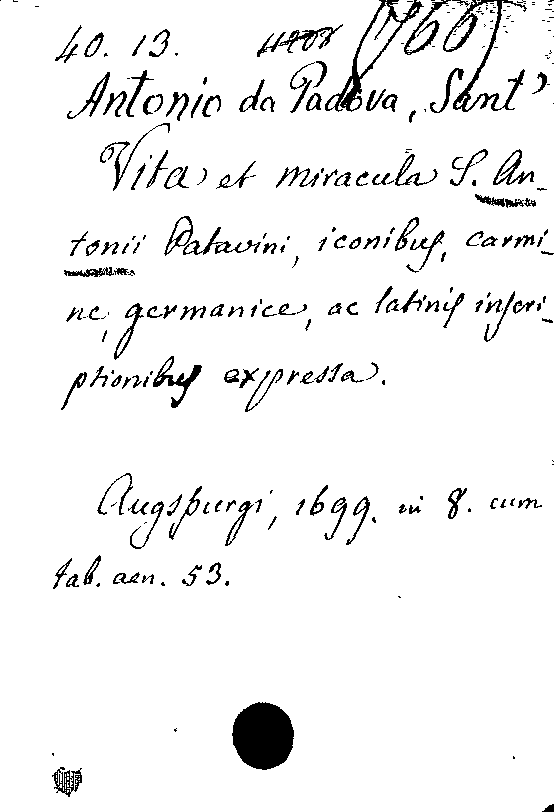 40. 13. (766)
Antonio da Padova, Sant'
Vita et miracula S. An_
tonii Patavini, iconibus, carmi_
ne, germanice, ac latinis inscri_
ptionibus expressa.
Augspurgi, 1699. in 8. cum
tab. aen. 53.